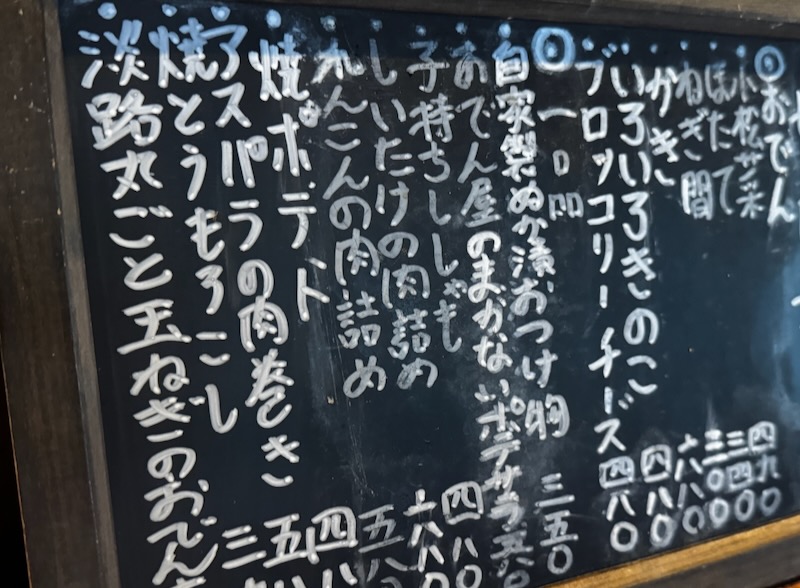 ◎おでん
小松菜 四九〇
ほたて 三四〇
ねぎ間 〇
かき 六八〇
いろいろきのこ 四八〇
ブロッコリーチーズ 四八〇
◎一品
自家製ぬか漬おつけ物 三五〇
おでん屋のまかないポテサラ 五八〇
子持ちししゃも 四八〇
しいたけの肉詰め 六八〇
れんこんの肉詰め 五八
焼ポテト 四八
アスパラの肉巻き 五
焼とうもろこし 三
淡路丸ごと玉ねぎのおでん